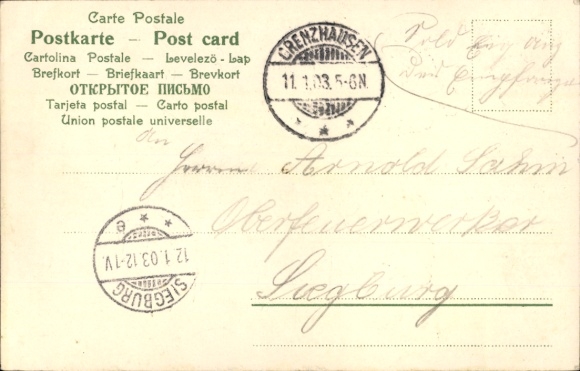 Carte Postale
Postkarte — Post card
Cartolina Postale — Levelező-Lap
Brefkort — Briefkaart — Brevkort
ОТКРЫТОЕ ПИСЬМО
Tarjeta postal — Carto postal
Union postale universelle
GRENZHAUSEN
11.1.03.5-6N.
* * *
An
Herrn Arnold
Oberfeuerwerker
Siegburg
SIEGBURG
12.1.03.12-1V.
* * e